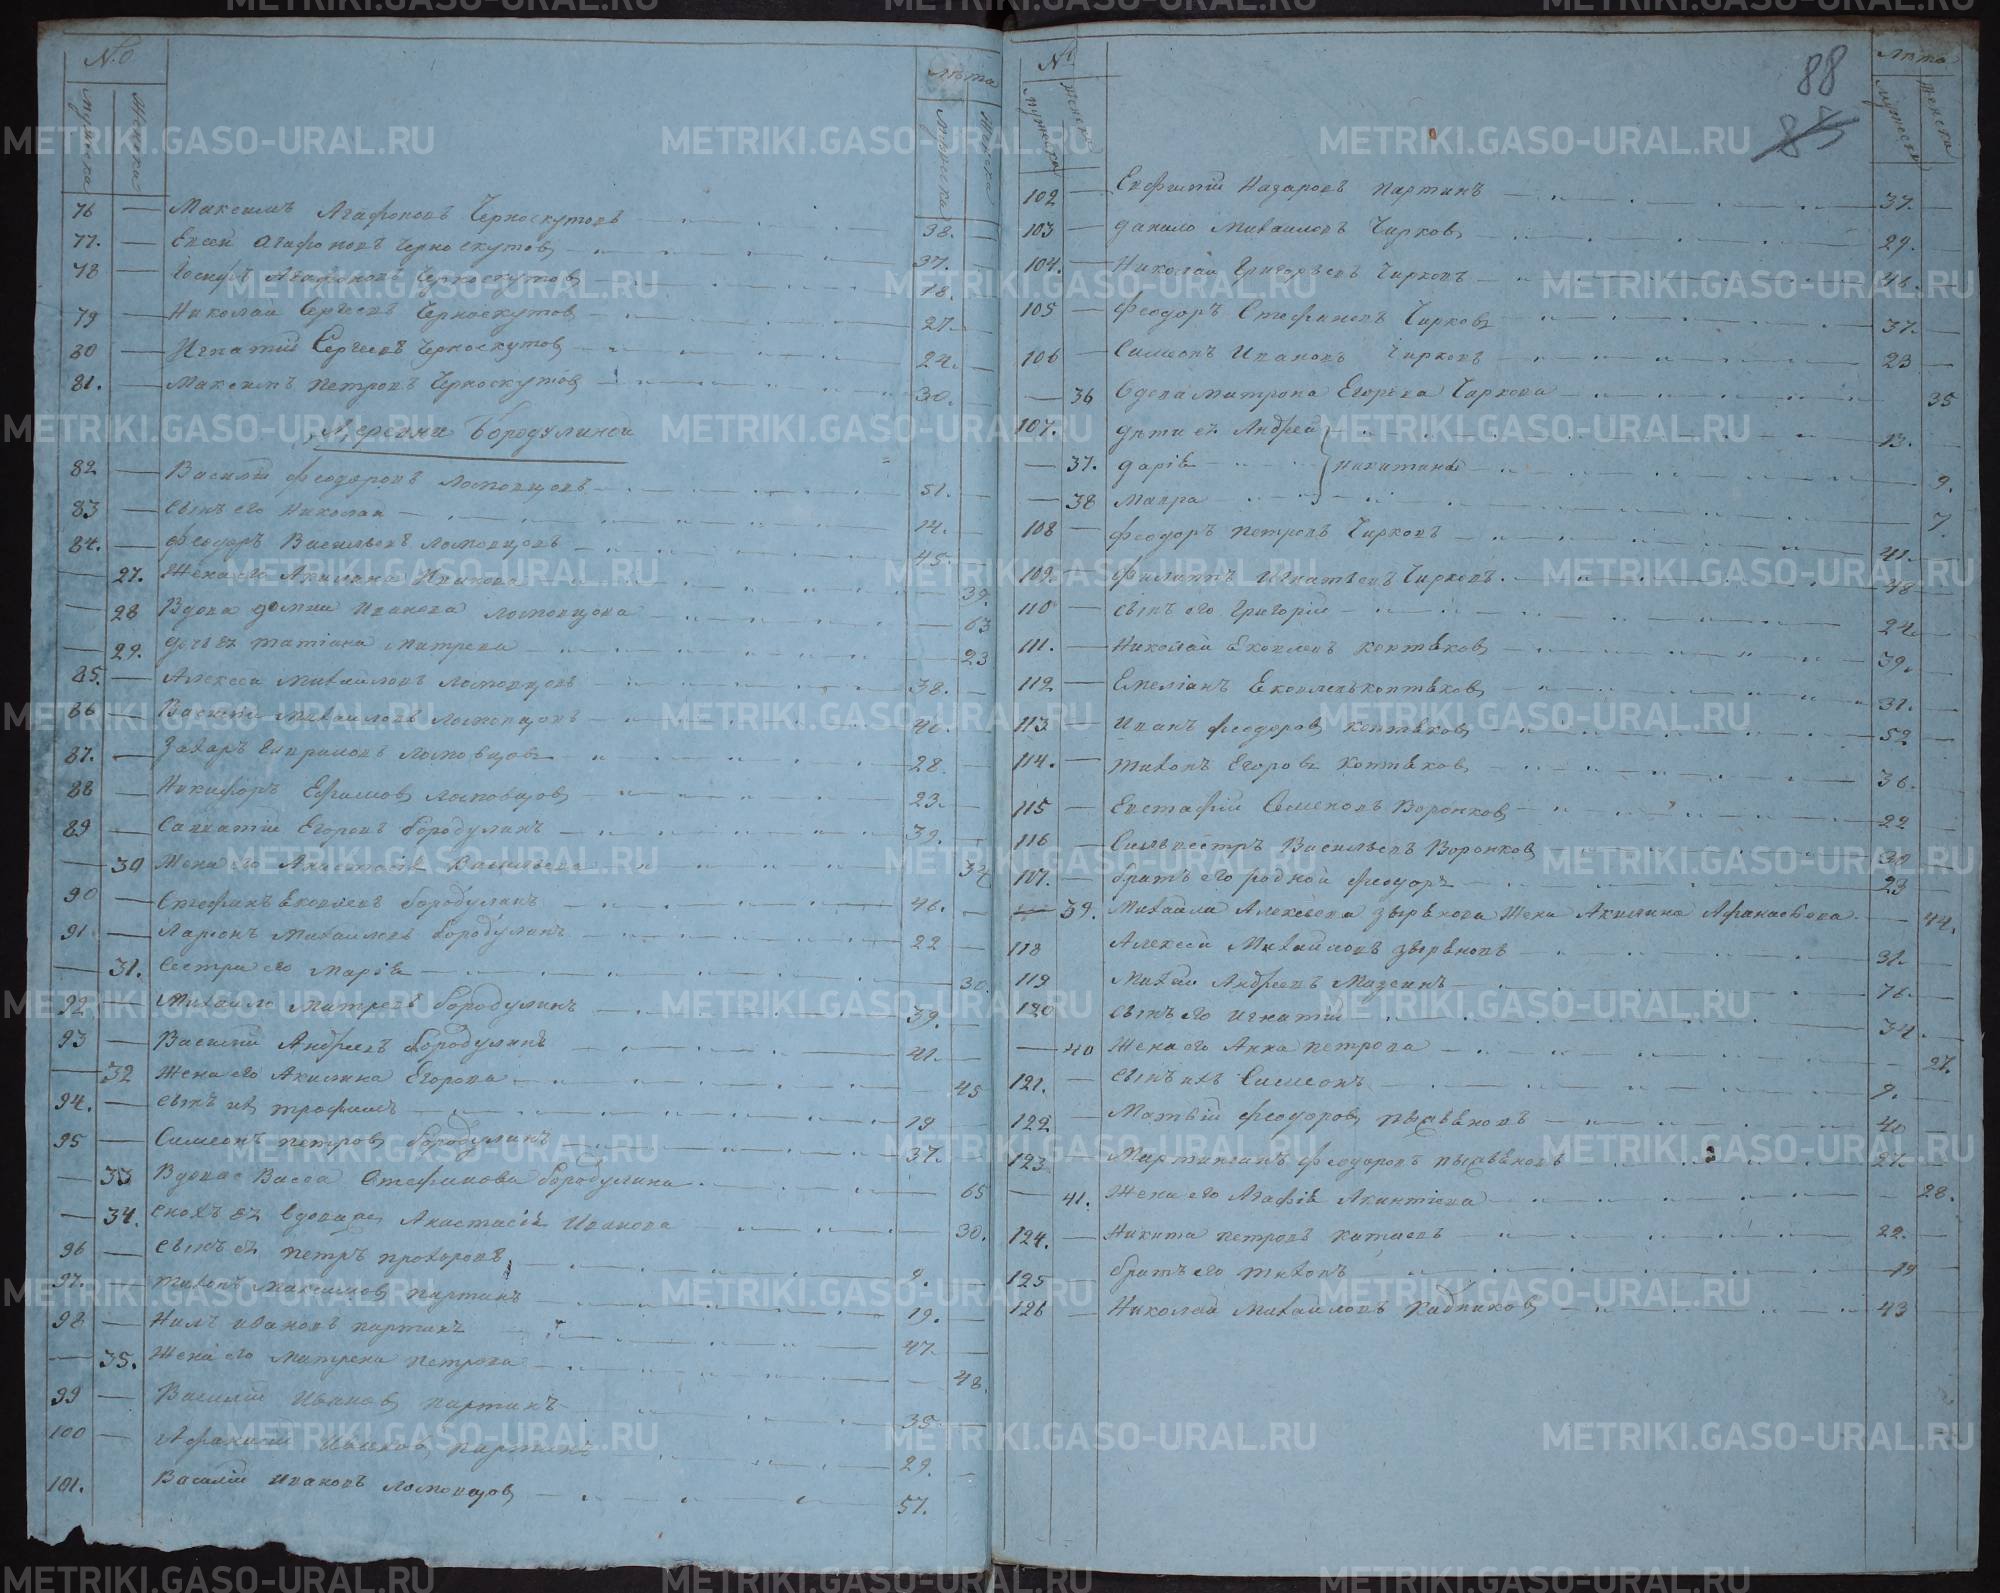 №
Лѣта
Мужеска
Женска
Мужеска
Женска
76 — Максимъ Агафоновъ Черноскутовъ 38.
77. — Евсей Агафоновъ Черноскутовъ 37.
78 — Iосифъ Агафоновъ Черноскутовъ 18.
79 — Николай Сергѣевъ Черноскутовъ 27.
80 — Игнатiй Сергѣевъ Черноскутовъ 24.
81. — Максимъ Петровъ Черноскутовъ 30.
Деревни Бородулиной
82 — Василiй Феодоровъ Ломовцовъ 51.
83 — Сынъ его Николай 14.
84. — Феодоръ Васильевъ Ломовцовъ 45.
— 27. Жена его Акилина Иванова 39.
— 28 Вдова Домни Иванова Ломовцова 63
— 29. Дочь ея Татiана Митрева 23
85. — Алексей Михайловъ Ломовцовъ 38.
86 — Василiй Михайловъ Ломовцовъ 40.
87. — Захаръ Ломовцовъ 28
88 — Никифоръ Ефимовъ Ломовцовъ 23.
89 — Савватiй Егоровъ Бородулинъ 39.
— 30 Жена его Анастасiя Васильева 34
90 — Стефанъ Яковлевъ Бородулинъ 46.
91 — Ларiонъ Михайловъ Бородулинъ 22
— 31. Сестра его Марiя 30.
92 — Михайло Митревъ Бородулинъ 39.
93 — Василiй Андреевъ Бородулинъ 41.
— 32 Жена его Акилина Егорова 45
94. — Сынъ их Трофимъ 19
95 — Симеонъ Петровъ Бородулинъ 37.
— 33 Вдова Васса Стефанова Бородулина 65
— 34. Снохъ ея вдова Анастасiя Иванова 30.
96 — Сынъ ея Петръ Прохоровъ 9.
97. — Тихонъ Максимовъ Партинъ 19.
98 — Нилъ Ивановъ Партинъ 47.
— 35. Жена его Митрена Петрова 48.
99 — Василiй Ивановъ Партинъ 35
100 — Афанасiй Ивановъ Партинъ 29.
101. Василiй Ивановъ Ломовцовъ 57.
88
85
№
Лѣта
Мужеска
Женска
Мужеска
Женска
102 — Евфимiй Назаровъ Партинъ 37.
103 — Данило Михайловъ Чирковъ 29.
104. — Николай Григорьевъ Чирковъ 46.
105 — Феодоръ Стефановъ Чирковъ 37.
106 — Симеонъ Ивановъ Чирковъ 23
— 36 Вдова Матрона Егорова Чиркова 35
107. Дѣти ея Андрей 13.
— 37. Дарiя Никитины 9.
— 38 Мавра 7.
108 — Феодоръ Петровъ Чирковъ 41.
109. — Филиппъ Игнатьевъ Чирковъ 48
110 — Сынъ его Григорiй 24.
111. — Николай Яковлевъ Коптяковъ 39.
112 — Емелiанъ Яковлевъ Коптяковъ 31.
113 — Иванъ Феодоровъ Коптяковъ 52
114. — Тихонъ Егоровъ Коптяковъ 36.
115 — Евстафiй Семеновъ Воронковъ 22
116 — Сильвестръ Васильевъ Воронковъ 30
107. — Братъ его родной Феодоръ 23
— 39. Михаила Алексѣева Зырянова Жена Акилина Афанасьева 44.
118 Алексей Михайловъ Зыряновъ 31.
119 Михей Андреевъ Мазеинъ 76.
120 Сынъ его Игнатiй 34.
— 40 Жена его Анна Петрова 27.
121. — Сынъ их Симеонъ 9.
122 Матвiй Феодоровъ 40
123. Мартинiанъ Феодоровъ 27.
— 41. Жена его Агафiя 28.
124. — Никита Петровъ Китаевъ 22.
125 — Братъ его Тихонъ 19
126 — Николай Михайловъ Кадниковъ 43
METRIKI.GASO-URAL.RU